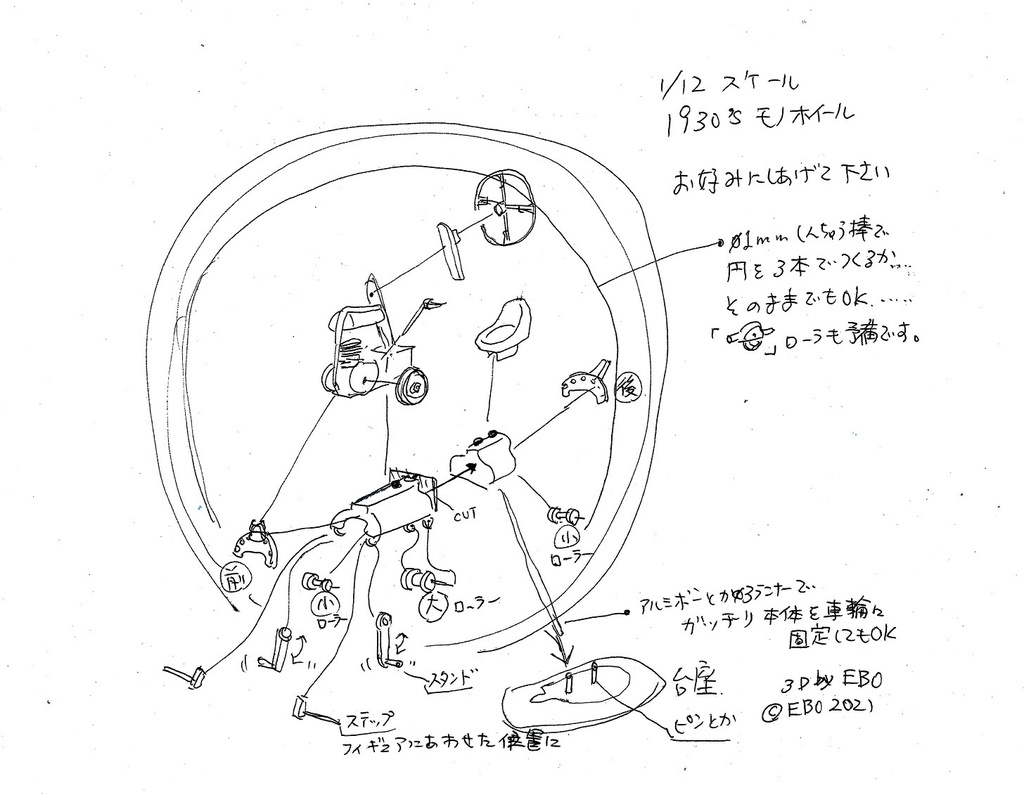 1/12 スケール
1930's モノホイール
お好みにしあげて下さい
ø1mmしんちゅう棒で
円を3本でつくるか…
そのままでもOK……
「 」ローラも予備です。
後
CUT
小
ローラー
前
小
ローラー
大 ローラー
アルミボーとかø3ランナーで
ガッチリ 本体を車輪に
固定してもOK
スタンド
台座
3D by EBO
© EBO 2021
ピンとか
ステップ
フィギュアにあわせた位置に